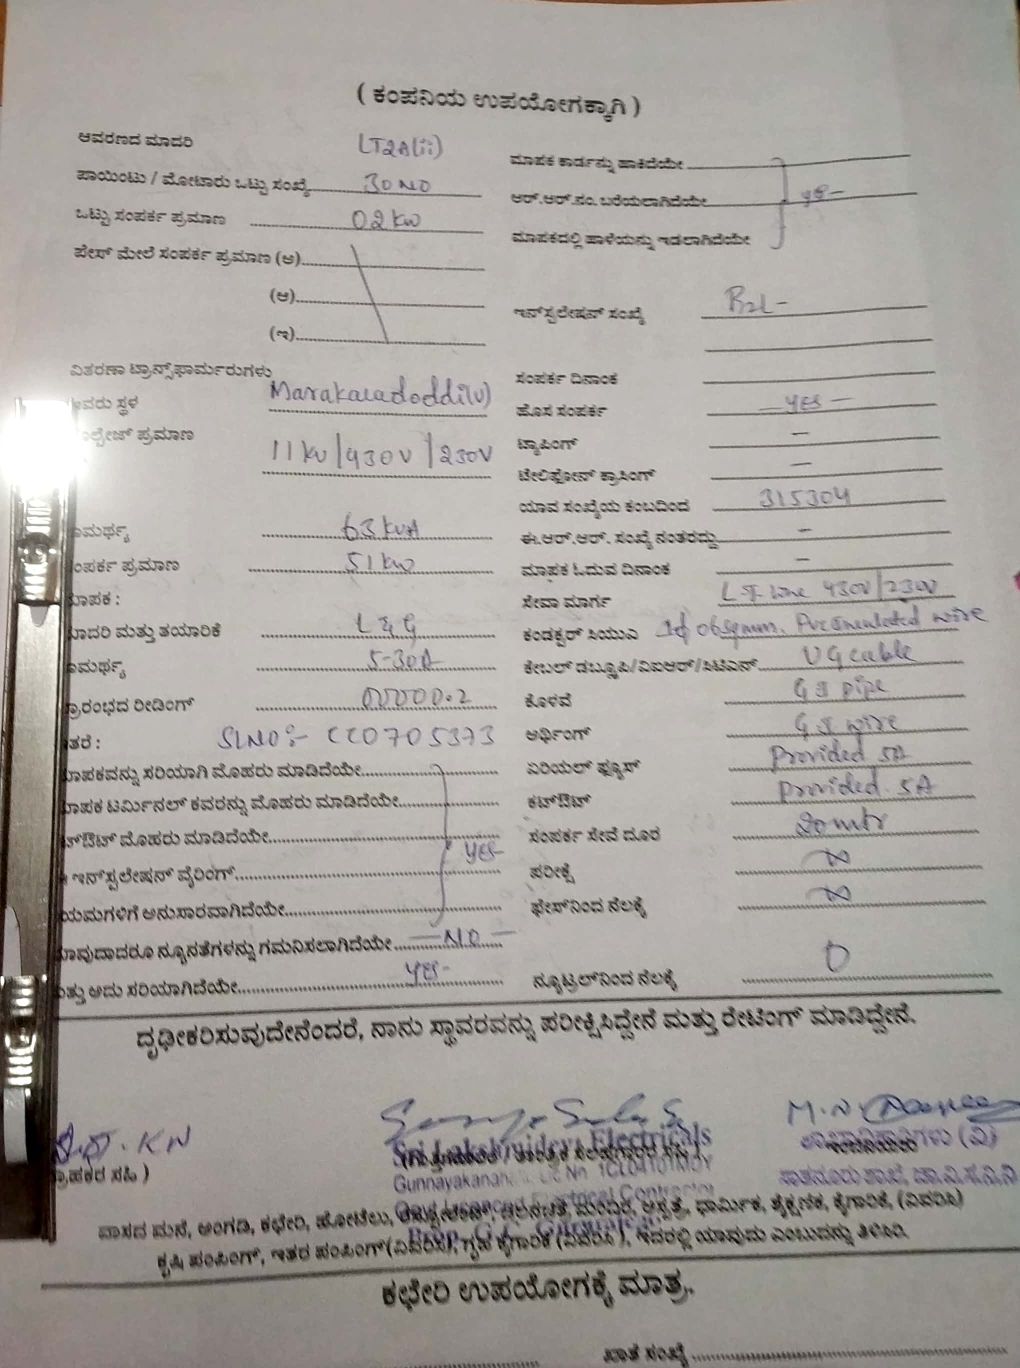 ( ಕಂಪನಿಯ ಉಪಯೋಗಕ್ಕಾಗಿ )
ಆವರಣದ ಮಾದರಿ LT2A(ii)
ಪಾಯಿಂಟು / ಮೋಟಾರು ಒಟ್ಟು ಸಂಖ್ಯೆ 30 NO
ಒಟ್ಟು ಸಂಪರ್ಕ ಪ್ರಮಾಣ 02 kw
ಪೇಸ್ ಮೇಲೆ ಸಂಪರ್ಕ ಪ್ರಮಾಣ (ಅ)
(ಆ)
(ಇ)
ವಿತರಣಾ ಟ್ರಾನ್ಸ್‌ಫಾರ್ಮರುಗಳು
ವರು ಸ್ಥಳ Marakaladoddi(v)
ಲ್ಟೇಜ್ ಪ್ರಮಾಣ 11 kv/430V/230V
ಮರ್ಥ್ಯ 63 kvA
ಂಪರ್ಕ ಪ್ರಮಾಣ 51 kw
ಮಾಪಕ :
ಮಾದರಿ ಮತ್ತು ತಯಾರಿಕೆ L & G
ಮರ್ಥ್ಯ 5-30A
ಪ್ರಾರಂಭದ ರೀಡಿಂಗ್ 00000.2
ತರೆ : SLNO:- CC0705373
ಮಾಪಕವನ್ನು ಸರಿಯಾಗಿ ಮೊಹರು ಮಾಡಿದೆಯೇ
ಮಾಪಕ ಟರ್ಮಿನಲ್ ಕವರನ್ನು ಮೊಹರು ಮಾಡಿದೆಯೇ
ಟ್‌ಔಟ್ ಮೊಹರು ಮಾಡಿದೆಯೇ YES-
ಇನ್‌ಸ್ಟಲೇಷನ್ ವೈರಿಂಗ್
ಯಮಗಳಿಗೆ ಅನುಸಾರವಾಗಿದೆಯೇ
ಯಾವುದಾದರೂ ನ್ಯೂನತೆಗಳನ್ನು ಗಮನಿಸಲಾಗಿದೆಯೇ - NO -
ತ್ತು ಅದು ಸರಿಯಾಗಿದೆಯೇ YES-
ಮಾಪಕ ಕಾರ್ಡನ್ನು ಹಾಕಿದೆಯೇ
ಆರ್.ಆರ್.ನಂ. ಬರೆಯಲಾಗಿದೆಯೇ yes-
ಮಾಪಕದಲ್ಲಿ ಹಾಳೆಯನ್ನು ಇಡಲಾಗಿದೆಯೇ
ಇನ್‌ಸ್ಟಲೇಷನ್ ಸಂಖ್ಯೆ
ಸಂಪರ್ಕ ದಿನಾಂಕ
ಹೊಸ ಸಂಪರ್ಕ - YES -
ಟ್ಯಾಪಿಂಗ್ -
ಟೆಲಿಫೋನ್ ಕ್ರಾಸಿಂಗ್ -
ಯಾವ ಸಂಖ್ಯೆಯ ಕಂಬದಿಂದ 315304
ಈ.ಆರ್.ಆರ್. ಸಂಖ್ಯೆ ನಂತರದ್ದು -
ಮಾಪಕ ಓದುವ ದಿನಾಂಕ -
ಸೇವಾ ಮಾರ್ಗ LT line 430V/230V
ಕಂಡಕ್ಟರ್ ಸಿಯುಎ 06sqmm. Pvc insulated wire
ಕೇಬಲ್ ಡಬ್ಲ್ಯೂಪಿ/ವಿಐಆರ್/ಸಿಟಿಎಸ್ UG cable
ಕೊಳವೆ G I pipe
ಅರ್ಥಿಂಗ್ G I wire
ಏರಿಯಲ್ ಫ್ಯೂಸ್ Provided 5A
ಕಟ್‌ಔಟ್ Provided. 5A
ಸಂಪರ್ಕ ಸೇವೆ ದೂರ 20 mtr
ಪರೀಕ್ಷೆ
ಫೇಸ್‌ನಿಂದ ನೆಲಕ್ಕೆ
ನ್ಯೂಟ್ರಲ್‌ನಿಂದ ನೆಲಕ್ಕೆ 0
ದೃಢೀಕರಿಸುವುದೇನೆಂದರೆ, ನಾನು ಸ್ಥಾವರವನ್ನು ಪರೀಕ್ಷಿಸಿದ್ದೇನೆ ಮತ್ತು ರೇಟಿಂಗ್ ಮಾಡಿದ್ದೇನೆ.
ಗ್ರಾಹಕರ ಸಹಿ )
Sri Lakshmidevi Electricals
Gunnayakanaha
Govt Licenced Electrical Contractor
ವಾಸದ ಮನೆ, ಅಂಗಡಿ, ಕಛೇರಿ, ಹೋಟೆಲು, ಮಂದಿರ, ಆಸ್ಪತ್ರೆ, ಧಾರ್ಮಿಕ, ಶೈಕ್ಷಣಿಕ, ಕೈಗಾರಿಕೆ, (ವಿವರಿಸಿ)
ಕೃಷಿ ಪಂಪಿಂಗ್, ಇತರ ಪಂಪಿಂಗ್(ವಿವರಿಸಿ), ಗೃಹ ಕೈಗಾರಿಕೆ (ವಿವರಿಸಿ ), ಇದರಲ್ಲಿ ಯಾವುದು ಎಂಬುದನ್ನು ತಿಳಿಸಿರಿ.
ಕಛೇರಿ ಉಪಯೋಗಕ್ಕೆ ಮಾತ್ರ.
ಖಾತೆ ಸಂಖ್ಯೆ